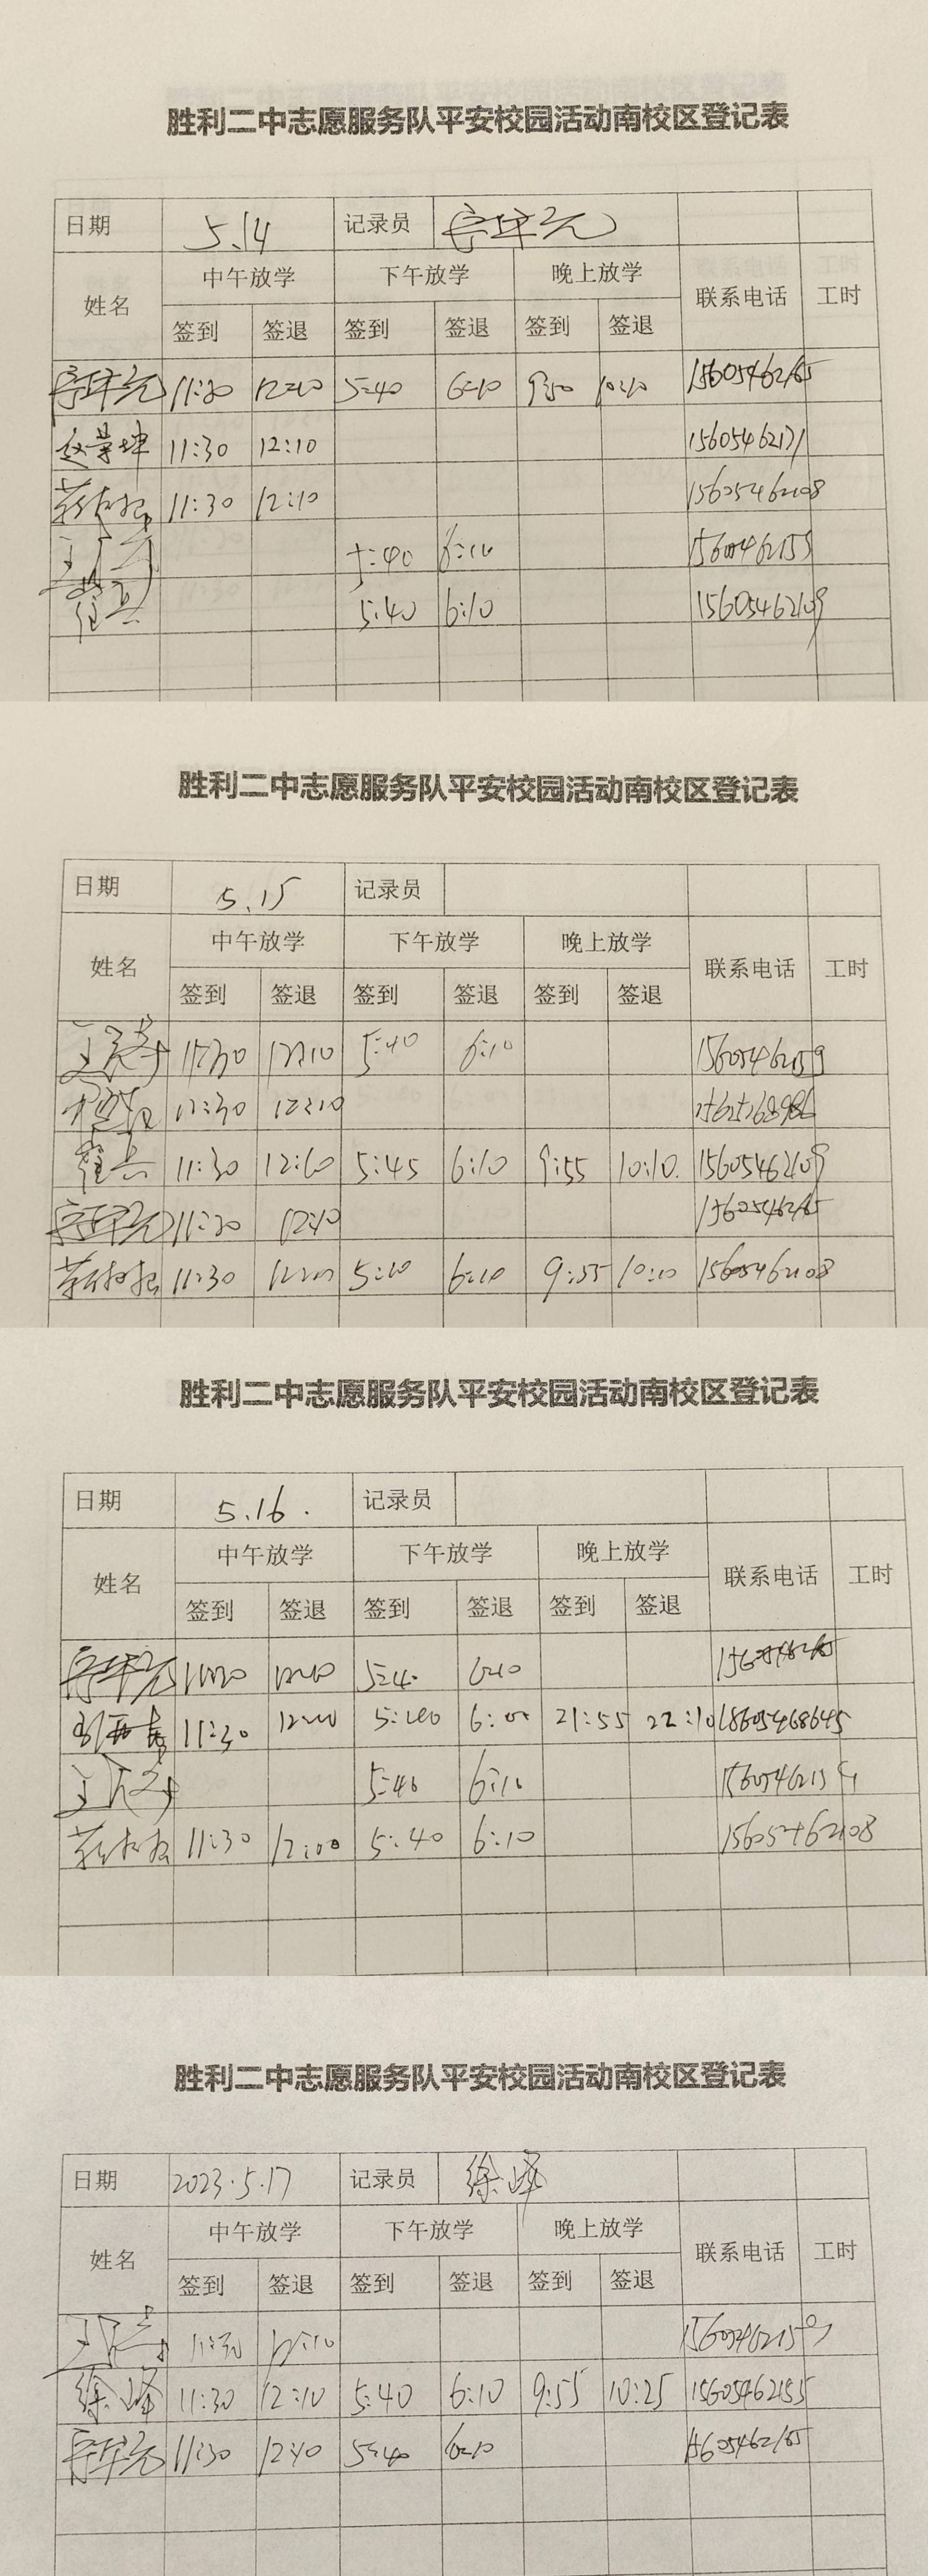 胜利二中志愿服务队平安校园活动南校区登记表
日期 5.14 记录员
姓名 中午放学 下午放学 晚上放学 联系电话 工时
签到 签退 签到 签退 签到 签退
11:30 12:10 5:40 6:10 9:50 10:10 15605462165
赵景坤 11:30 12:10 15605462171
11:30 12:10 15605462108
5:40 6:10
崔兵 5:40 6:10 15605462109
胜利二中志愿服务队平安校园活动南校区登记表
日期 5.15 记录员
姓名 中午放学 下午放学 晚上放学 联系电话 工时
签到 签退 签到 签退 签到 签退
11:30 12:10 5:40 6:10 15605462159
11:30 12:10
崔兵 11:30 12:10 5:45 6:10 9:55 10:10. 15605462109
11:30 12:10 15605462165
11:30 5:10 6:10 9:55 10:10 15605462108
胜利二中志愿服务队平安校园活动南校区登记表
日期 5.16. 记录员
姓名 中午放学 下午放学 晚上放学 联系电话 工时
签到 签退 签到 签退 签到 签退
11:30 12:10 5:40 6:10 15605462165
11:30 12:00 5:40 6:00 21:55 22:10 18605468645
5:40 6:10 15605462159
11:30 12:00 5:40 6:10 15605462108
胜利二中志愿服务队平安校园活动南校区登记表
日期 2023.5.17 记录员 徐峰
姓名 中午放学 下午放学 晚上放学 联系电话 工时
签到 签退 签到 签退 签到 签退
11:30 12:10 15605462159
徐峰 11:30 12:10 5:40 6:10 9:55 10:25 15605462155
11:30 12:10 5:40 6:10 15605462165